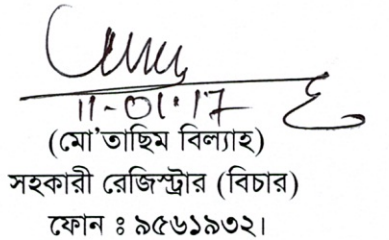 11-01-17
(মো'তাছিম বিল্যাহ)
সহকারী রেজিস্ট্রার (বিচার)
ফোন ঃ ৯৫৬১৯৩২।